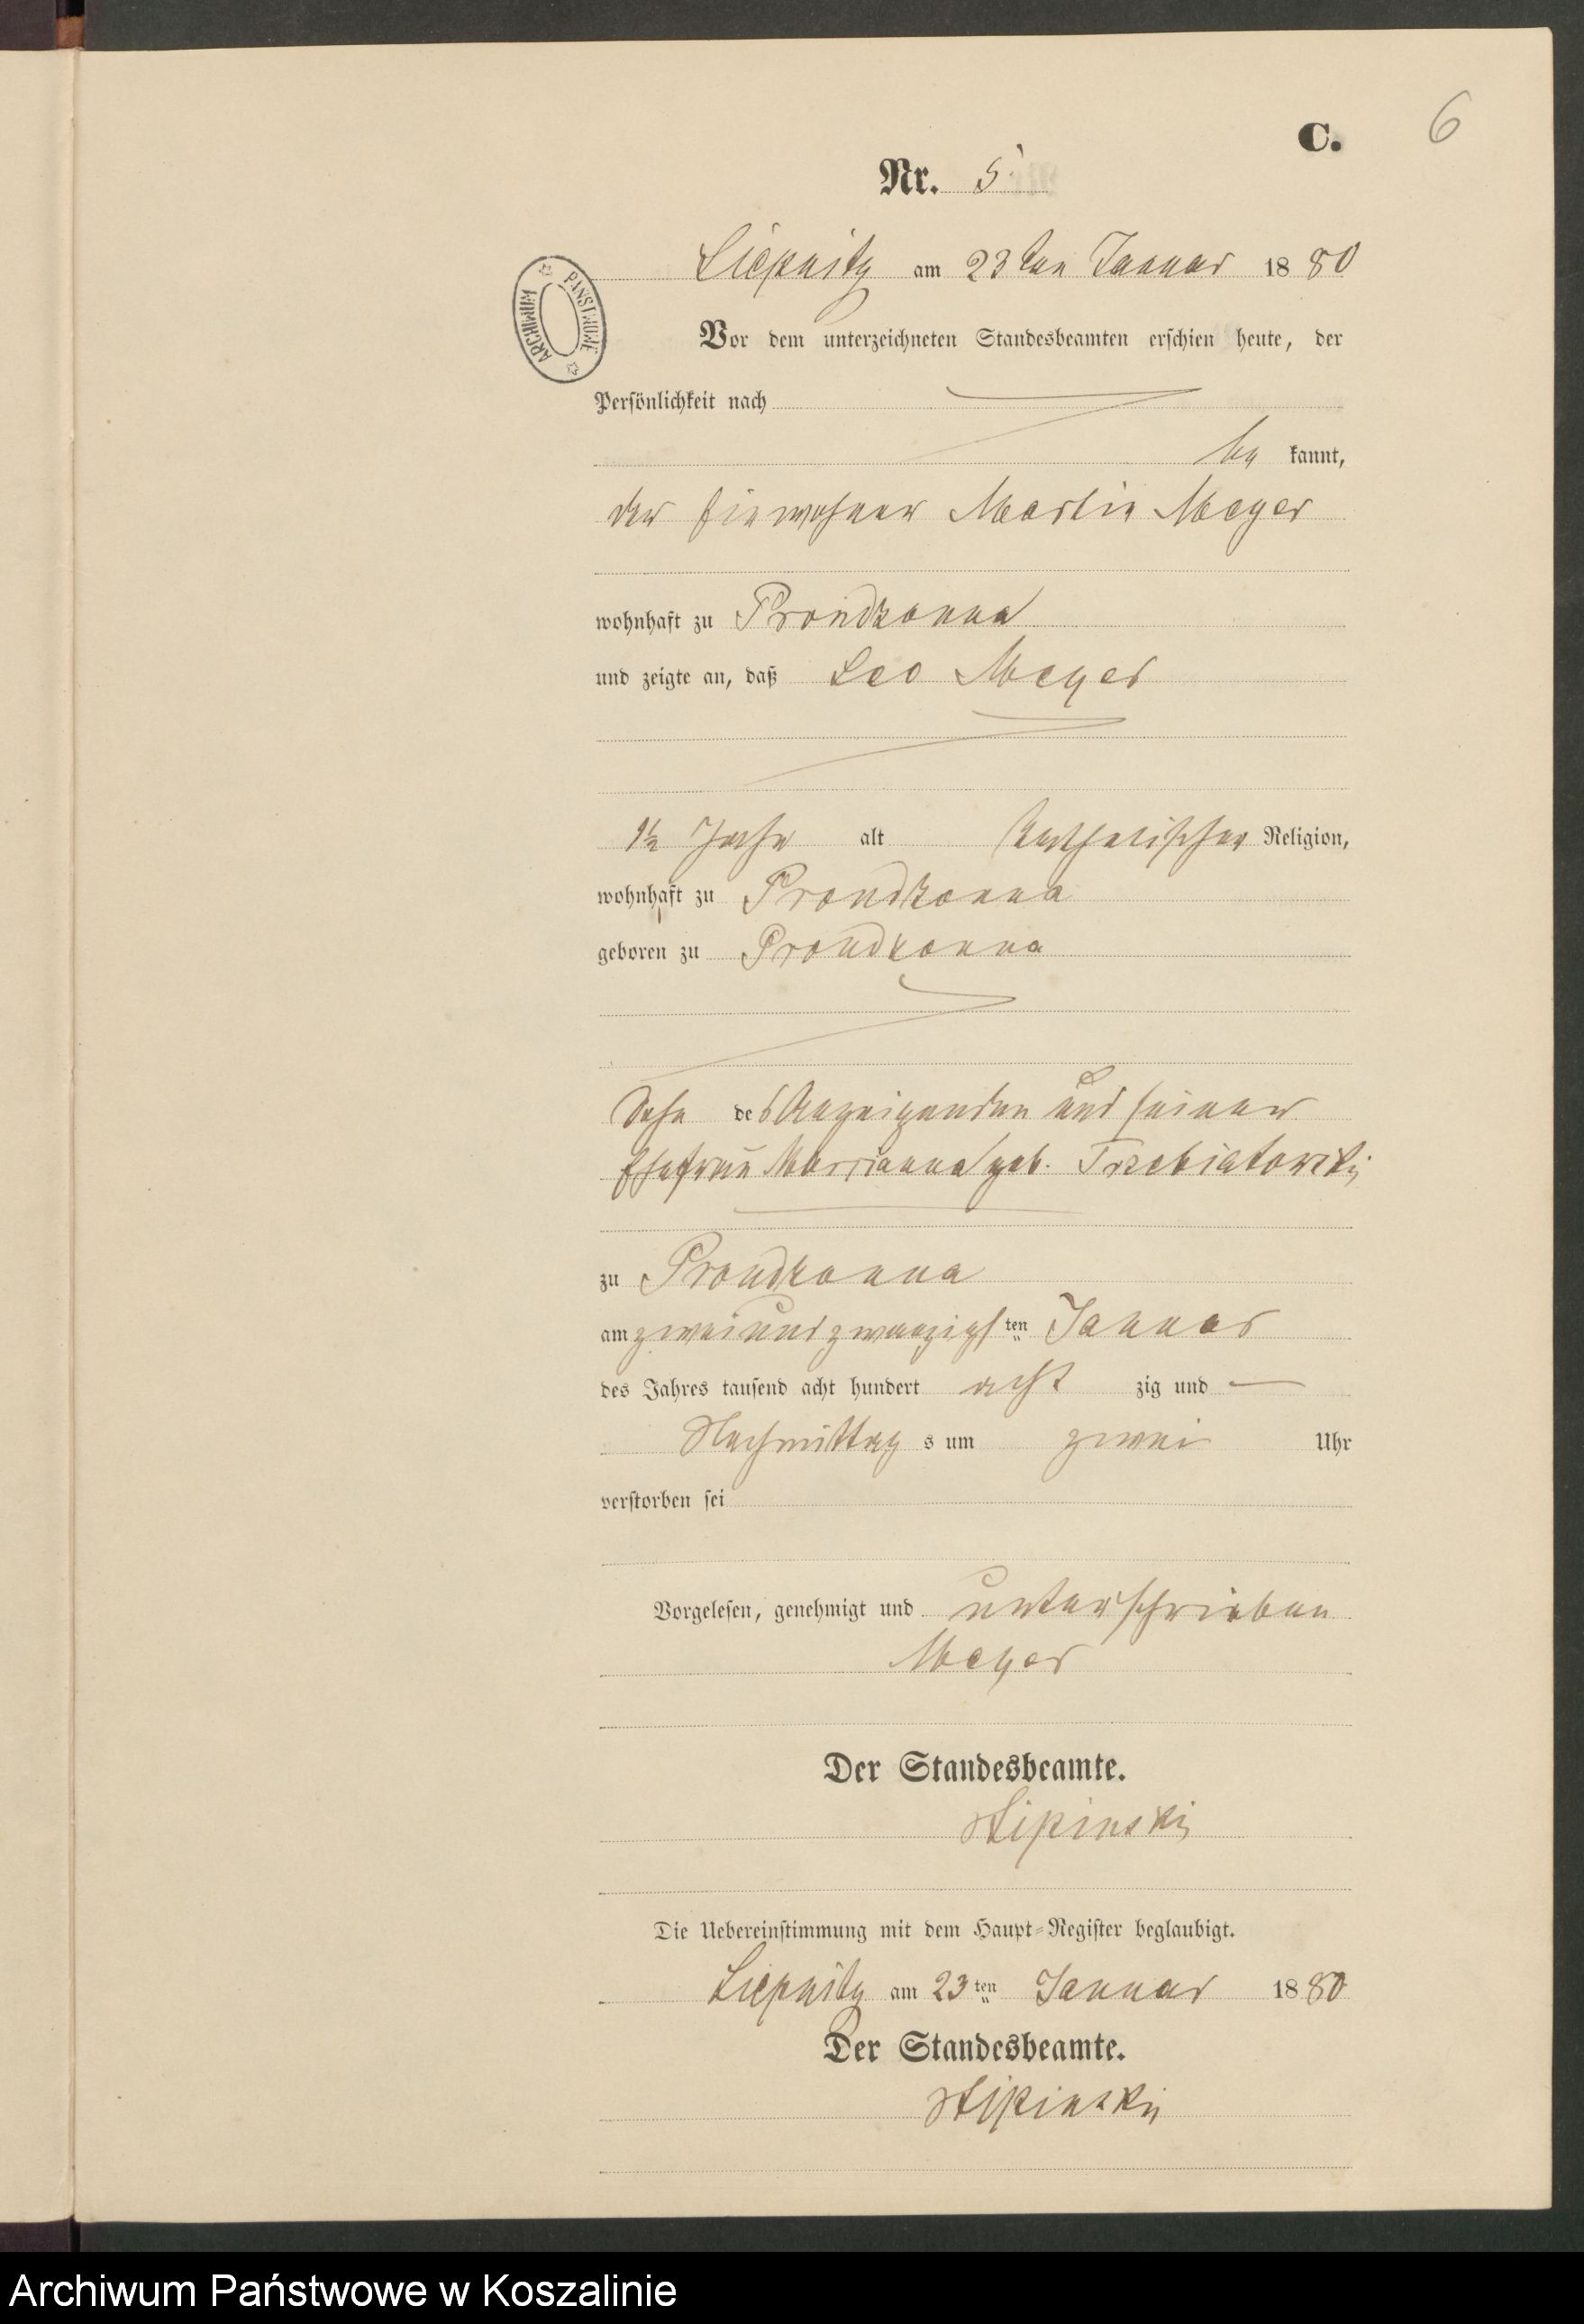 6
C.
Nr. 5
Liepnitz am 23ten Januar 1880
ARCHIWUM PAŃSTWOWE
Vor dem unterzeichneten Standesbeamten erschien heute, der
Persönlichkeit nach
be kannt,
der Einwohner Martin Meyer
wohnhaft zu Prondzonna
und zeigte an, daß Leo Meyer
1½ Jahr alt katholischer Religion,
wohnhaft zu Prondzonna
geboren zu Prondzonna
Sohn des Anzeigenden und seiner
Ehefrau Marianna geb. Trzebiatowski
zu Prondzonna
am zweiundzwanzigsten Januar
des Jahres tausend acht hundert acht zig und —
Nachmittag s um zwei Uhr
verstorben sei
Vorgelesen, genehmigt und unterschrieben
Meyer
Der Standesbeamte.
Lipinski
Die Uebereinstimmung mit dem Haupt-Register beglaubigt.
Liepnitz am 23ten Januar 1880
Der Standesbeamte.
Lipinski
Archiwum Państwowe w Koszalinie